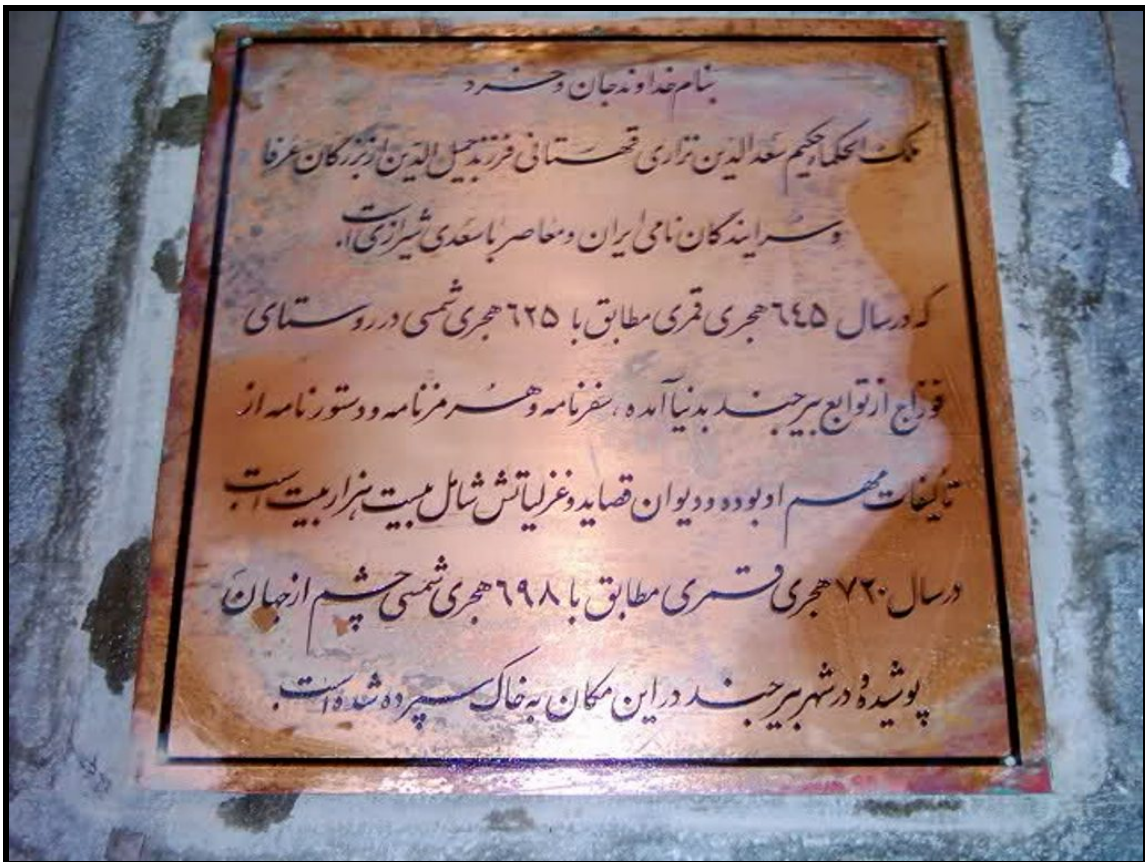 بنام خداوند جان و خرد
ملک الحکماء حکیم سعد الدین نزاری قهستانی فرزند جمیل الدین از بزرگان عرفا
و سرایندگان نامی ایران و معاصر با سعدی شیرازی است.
که در سال ٦٤٥ هجری قمری مطابق با ٦٢٥ هجری شمسی در روستای
فوزاج از توابع بیرجند بدنیا آمده، سفرنامه و هرمزنامه و دستورنامه از
تألیفات مهم او بوده و دیوان قصاید و غزلیاتش شامل بیست هزار بیت است
در سال ٧٢٠ هجری قمری مطابق با ٦٩٨ هجری شمسی چشم از جهان
پوشیده و در شهر بیرجند در این مکان به خاک سپرده شده است